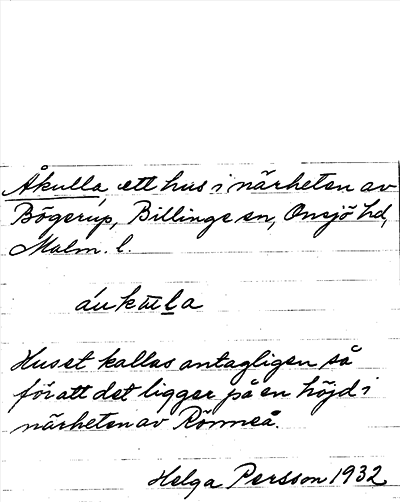 Åkulla, ett hus i närheten av
Bögerup, Billinge sn, Onsjö hd,
Malm. l.
Huset kallas antagligen så
för att det ligger på en höjd i
närheten av Rönneå.
Helga Persson 1932